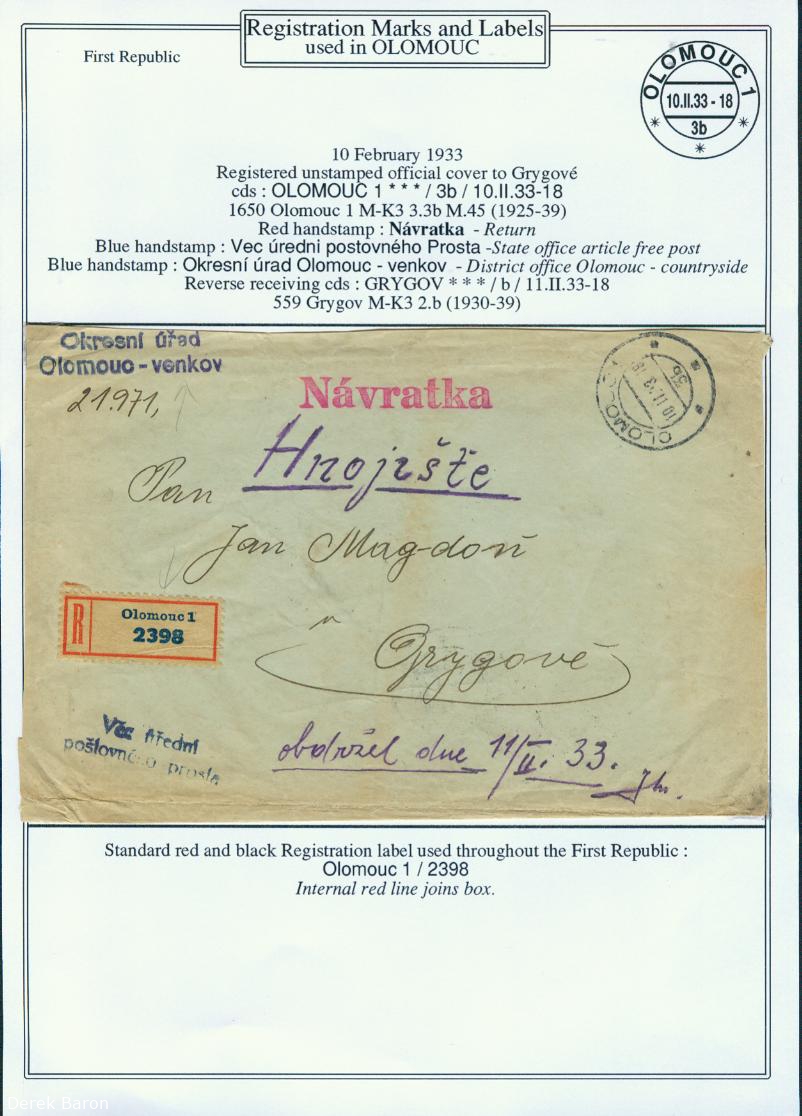 Registration Marks and Labels
used in OLOMOUC
First Republic
OLOMOUC 1
10.II.33 - 18
3b
10 February 1933
Registered unstamped official cover to Grygové
cds : OLOMOUC 1 * * * / 3b / 10.II.33-18
1650 Olomouc 1 M-K3 3.3b M.45 (1925-39)
Red handstamp : Návratka - Return
Blue handstamp : Vec úredni postovného Prosta -State office article free post
Blue handstamp : Okresní úrad Olomouc - venkov - District office Olomouc - countryside
Reverse receiving cds : GRYGOV * * * / b / 11.II.33-18
559 Grygov M-K3 2.b (1930-39)
Okresní úřad
Olomouc-venkov
21.971,
Návratka
OLOMOUC 1
10 II 33 18
3b
Hnojiště
Pan
Jan Magdoň
v
Grygově
R
Olomouc 1
2398
Věc úřední
poštovného prosta
obdržel dne 11/II. 33.
Standard red and black Registration label used throughout the First Republic :
Olomouc 1 / 2398
Internal red line joins box.
Derek Baron